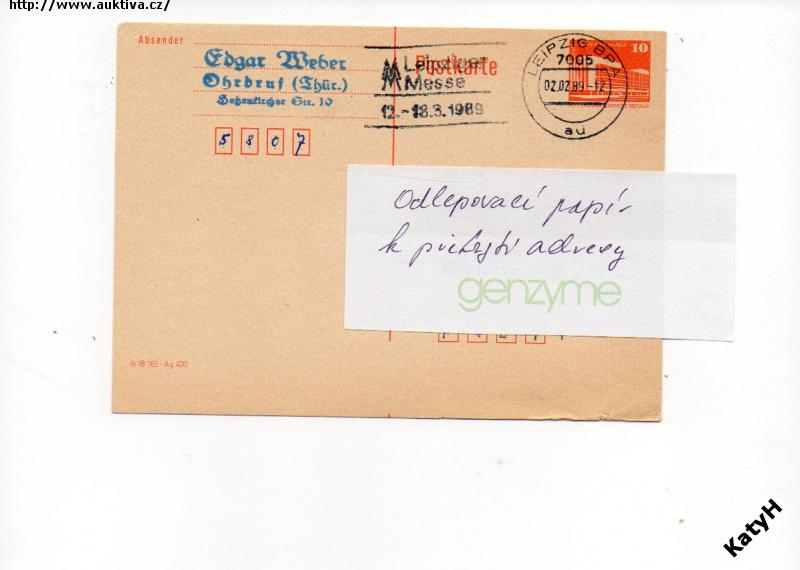 http://www.auktiva.cz/
Absender
Edgar Weber
Ohrdruf (Thür.)
Hohenkircher Str. 10
5 8 0 7
Postkarte
Leipziger
Messe
12.-18.3.1989
LEIPZIG BPA
7005
02.02.89-12
au
10
Odlepovací papír
k přikrytí adresy
genzyme
III 18 185 · Ag 400
KatyH